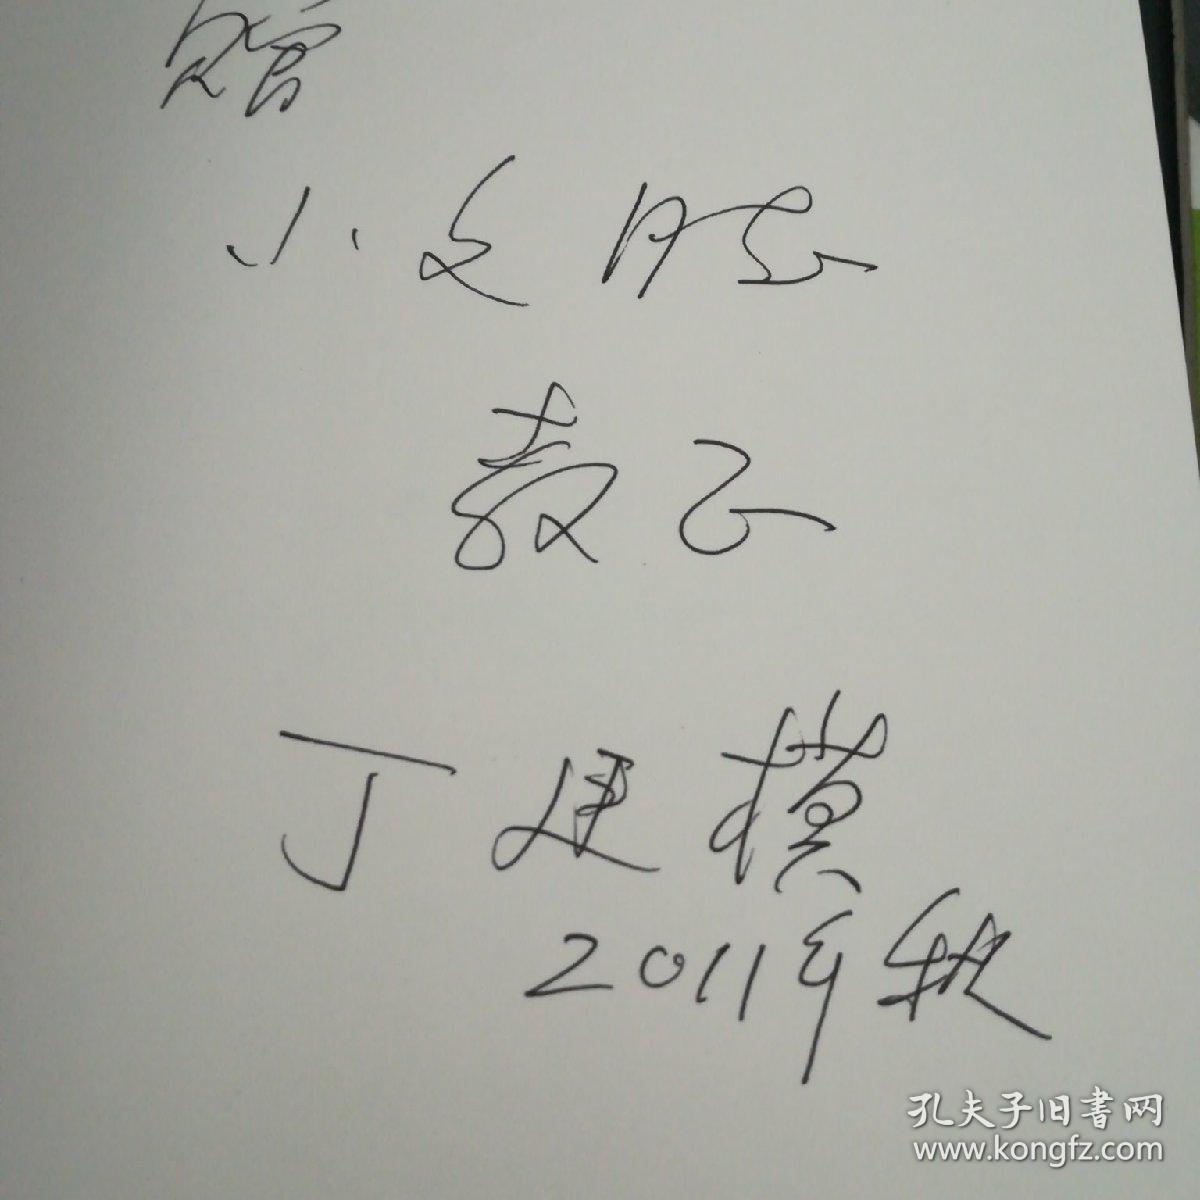 赠
小文胜
教正
丁建模
2011年秋
孔夫子旧书网
www.kongfz.com